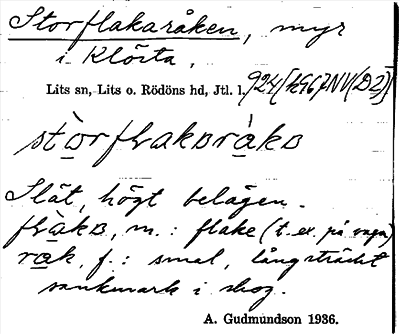 Storflakaråken, myr
i Klösta.
Lits sn, Lits o. Rödöns hd, Jtl. l.
Slät, högt belägen.
m.: flake (t. ex. på vagn)
råk, f.: smal, långsträckt
sankmark i skog.
A. Gudmundson 1936.